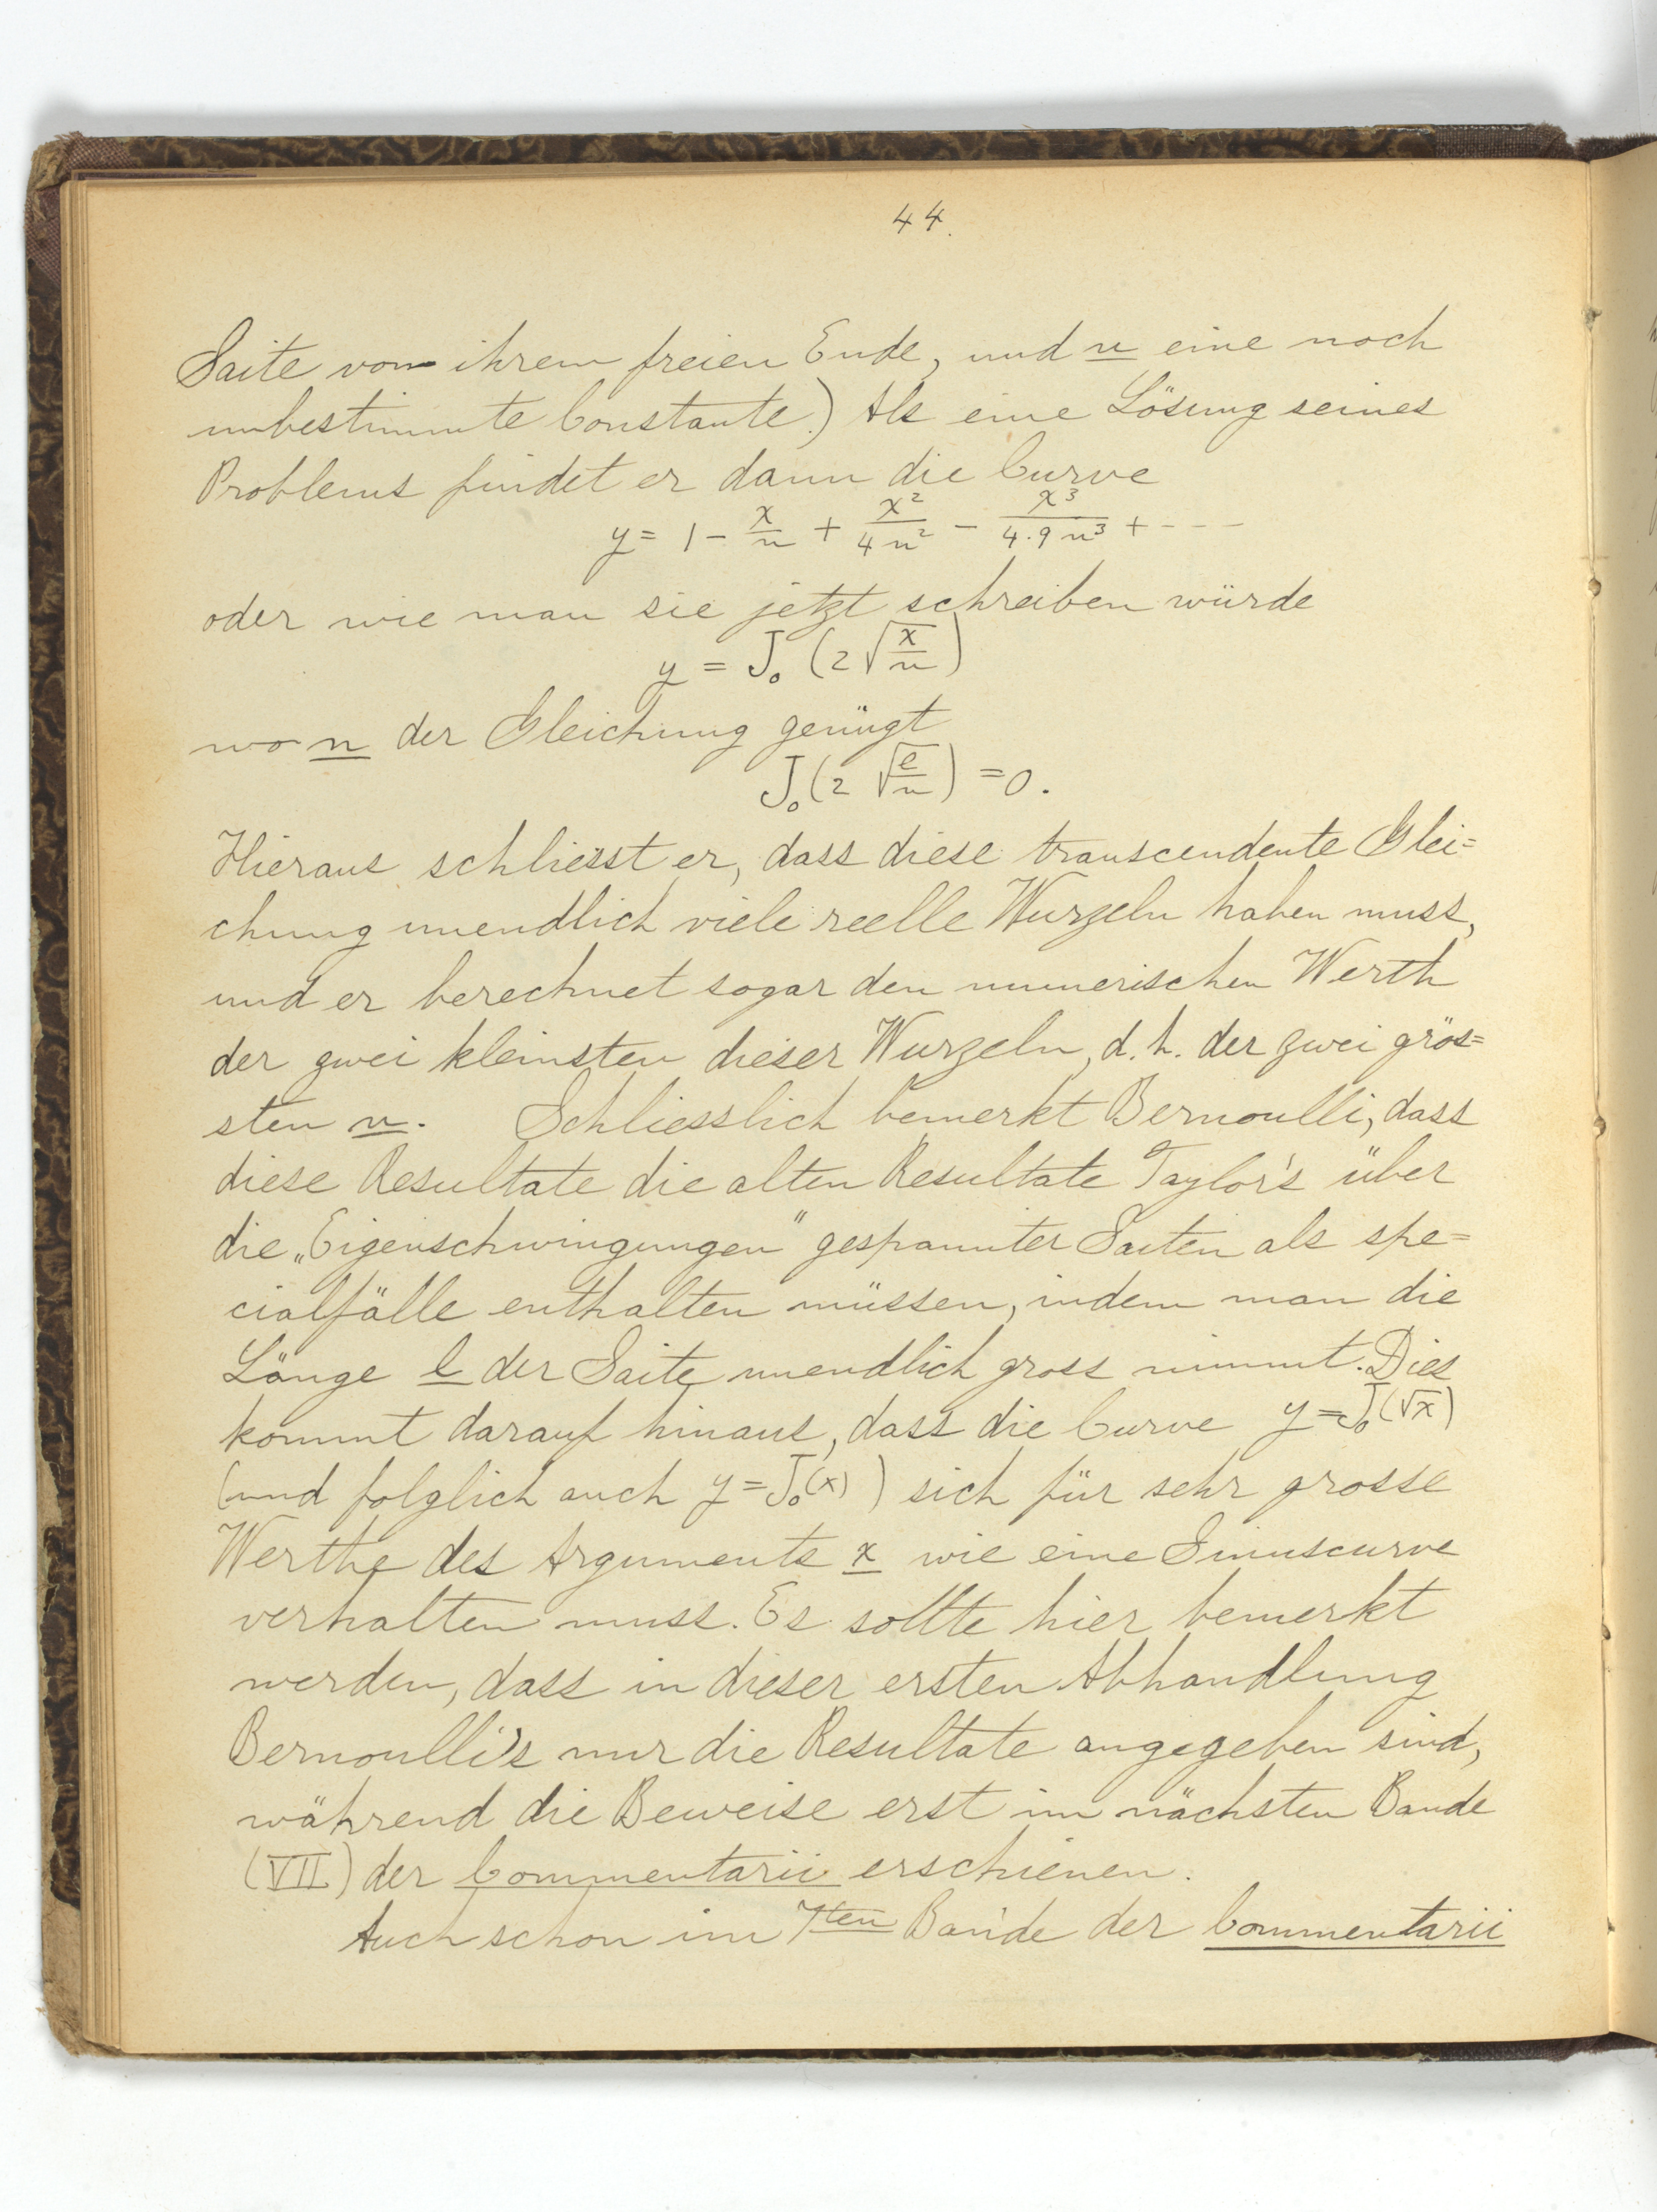 44.
Saite von ihrem freien Ende, und n eine noch
unbestimmte Constante.) Als eine Lösung seines
Problems findet er dann die Curve
y = 1 - x/n + x²/4n² - x³/4·9n³ + - - -
oder wie man sie jetzt schreiben würde
y = J₀ (2√x/n)
wo n der Gleichung genügt
J₀(2√l/n) = 0.
Hieraus schliesst er, dass diese transcendente Glei=
chung unendlich viele reelle Wurzeln haben muss,
und er berechnet sogar den numerischen Werth
der zwei kleinsten dieser Wurzeln, d. h. der zwei grös=
sten n. Schliesslich bemerkt Bernoulli, dass
diese Resultate die alten Resultate Taylor's über
die „Eigenschwingungen" gespannter Saiten als spe=
cialfälle enthalten müssen, indem man die
Länge l der Saite unendlich gross nimmt. Dies
kommt darauf hinaus, dass die Curve y = J₀(√x)
(und folglich auch y = J₀(x)) sich für sehr grosse
Werthe des Arguments x wie eine Sinuscurve
verhalten muss. Es sollte hier bemerkt
werden, dass in dieser ersten Abhandlung
Bernoulli's nur die Resultate angegeben sind,
während die Beweise erst im nächsten Bande
(VII) der Commentarii erschienen.
Auch schon im 7ten Bande der Commentarii